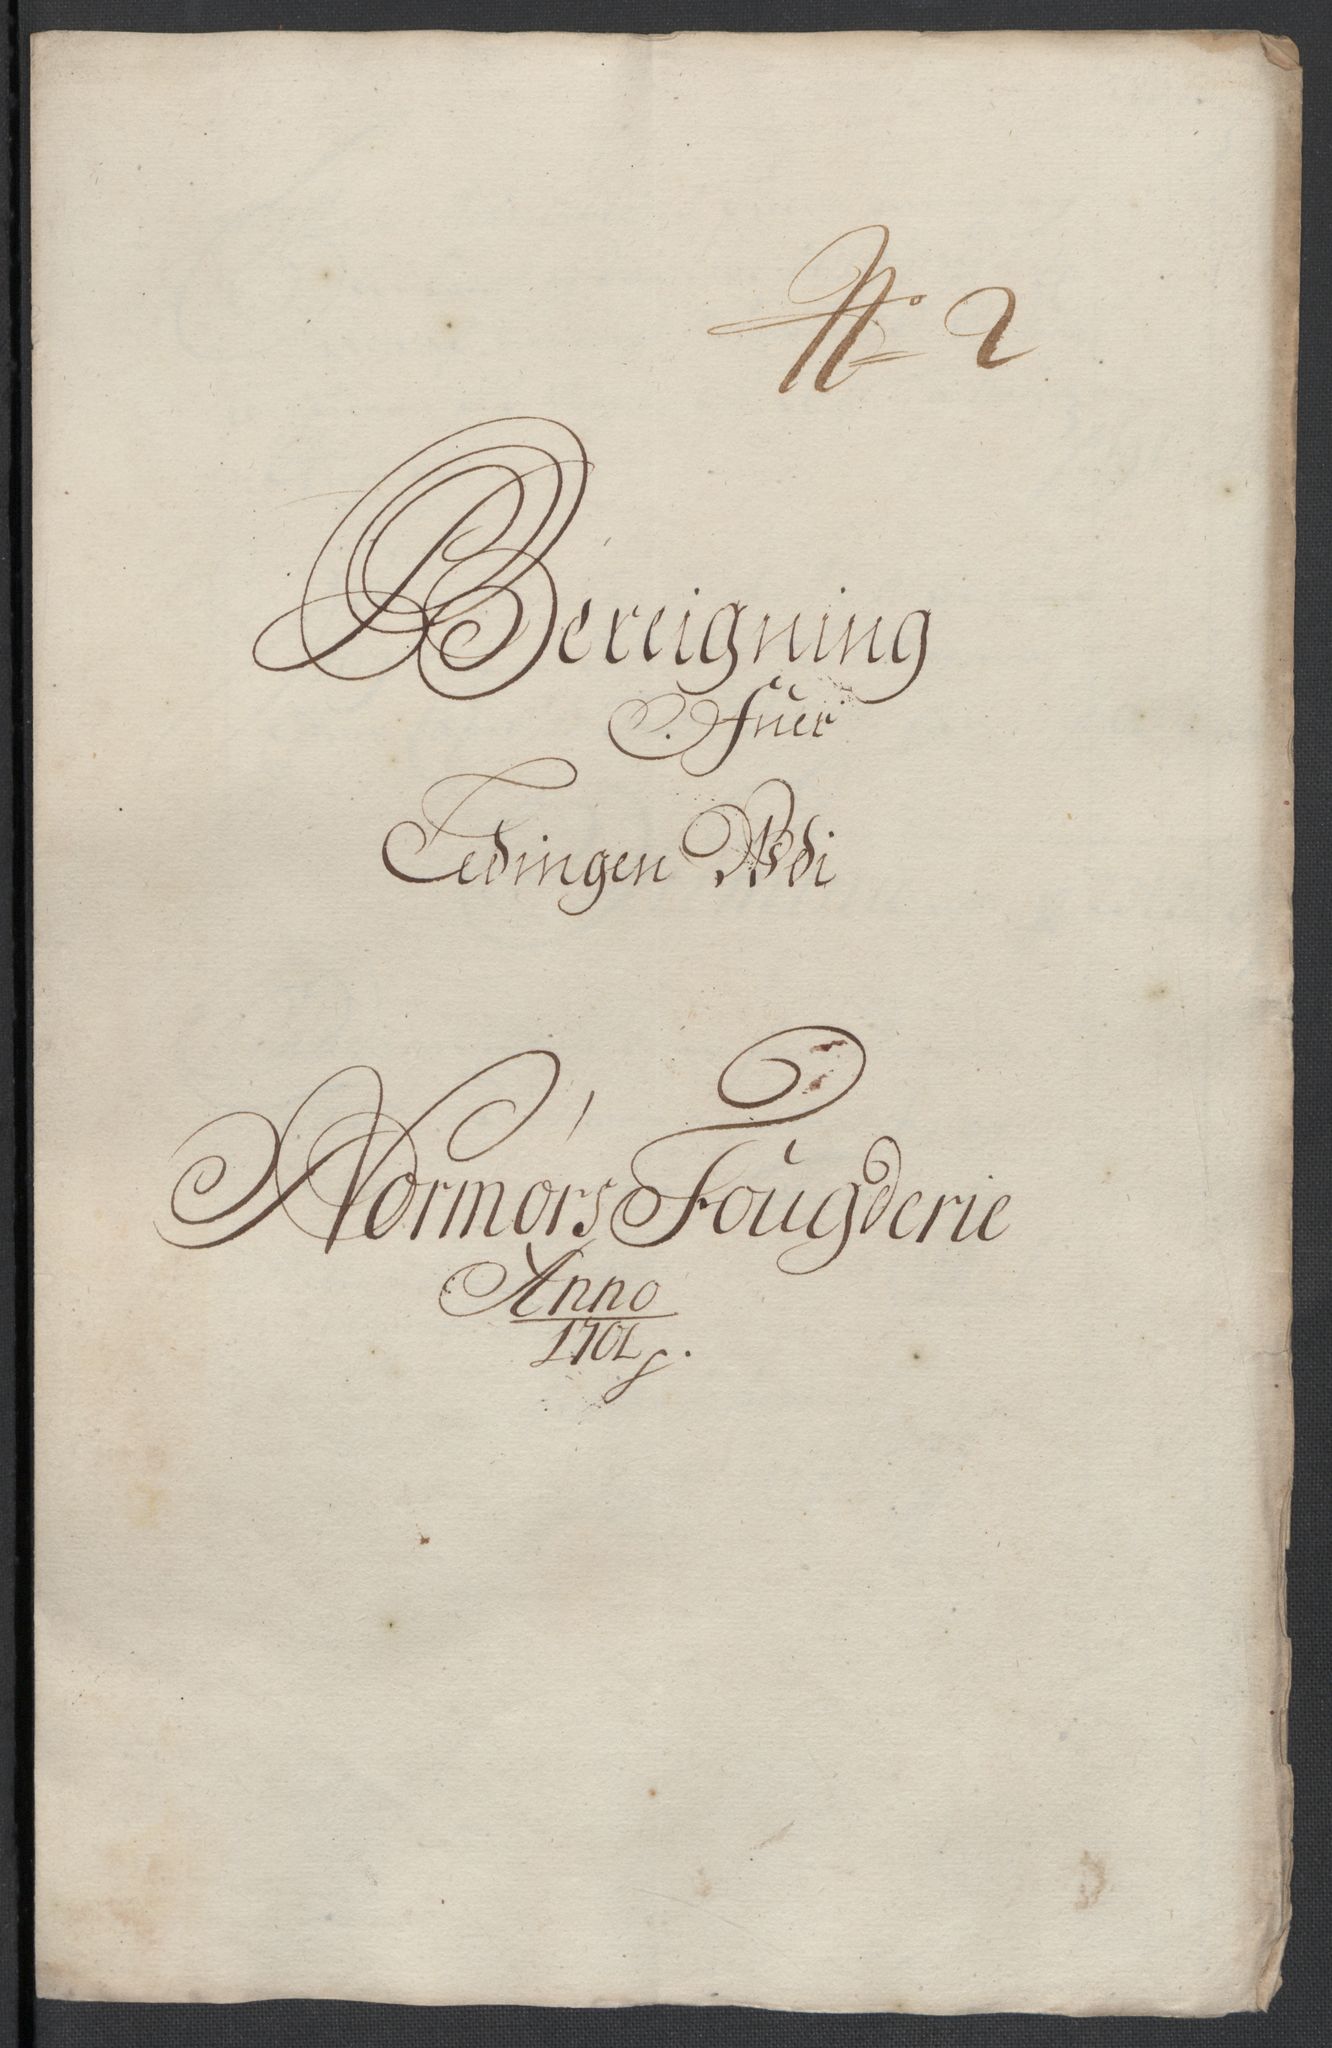 No 2
Bereigning
Ofuer
Tedingen Udi
Normørs Fougderie
Anno
1701